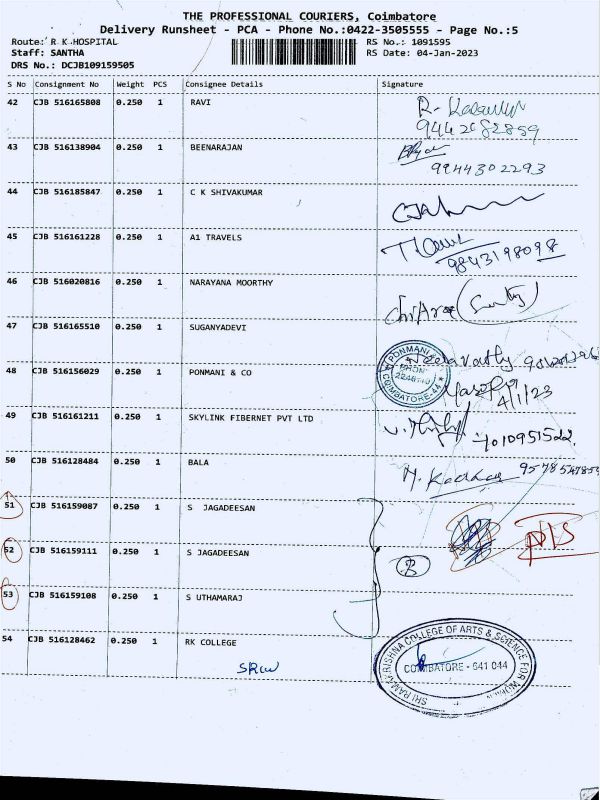 THE PROFESSIONAL COURIERS, Coimbatore
Delivery Runsheet - PCA - Phone No.:0422-3505555 - Page No.:5
Route: R K HOSPITAL RS No.: 1091595
Staff: SANTHA RS Date: 04-Jan-2023
DRS No.: DCJB109159505
S No Consignment No Weight PCS Consignee Details Signature
42 CJB 516165808 0.250 1 RAVI
9442682859
43 CJB 516138904 0.250 1 BEENARAJAN
9944302293
44 CJB 516185847 0.250 1 C K SHIVAKUMAR
45 CJB 516161228 0.250 1 A1 TRAVELS
9843198098
46 CJB 516020816 0.250 1 NARAYANA MOORTHY
47 CJB 516165510 0.250 1 SUGANYADEVI
48 CJB 516156029 0.250 1 PONMANI & CO
PONMANI
COIMBATORE-44
4/1/23
49 CJB 516161211 0.250 1 SKYLINK FIBERNET PVT LTD
7010951522
50 CJB 516128484 0.250 1 BALA
51 CJB 516159087 0.250 1 S JAGADEESAN
52 CJB 516159111 0.250 1 S JAGADEESAN
53 CJB 516159108 0.250 1 S UTHAMARAJ
54 CJB 516128462 0.250 1 RK COLLEGE
SRI RAMAKRISHNA COLLEGE OF ARTS & SCIENCE FOR WOMEN
COIMBATORE - 641 044